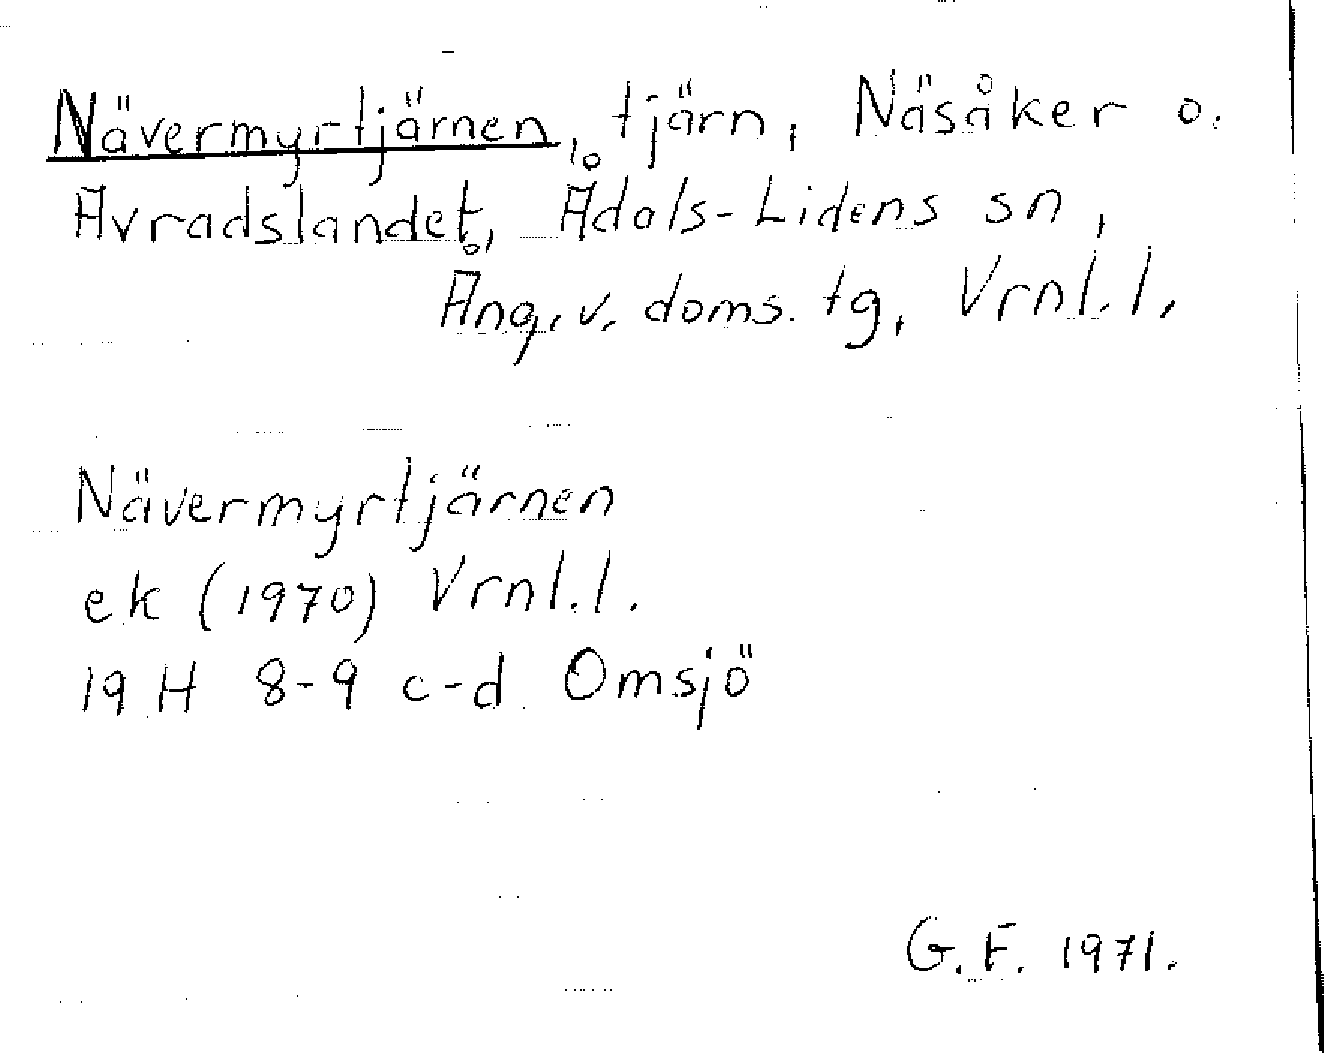 Nävermyrtjärnen, tjärn, Näsåker o.
Avradslandet, Ådals-Lidens sn,
Ång. v. doms. tg, Vrnl. l.
Nävermyrtjärnen
ek (1970) Vrnl. l.
19 H 8-9 c-d Omsjö
G. F. 1971.